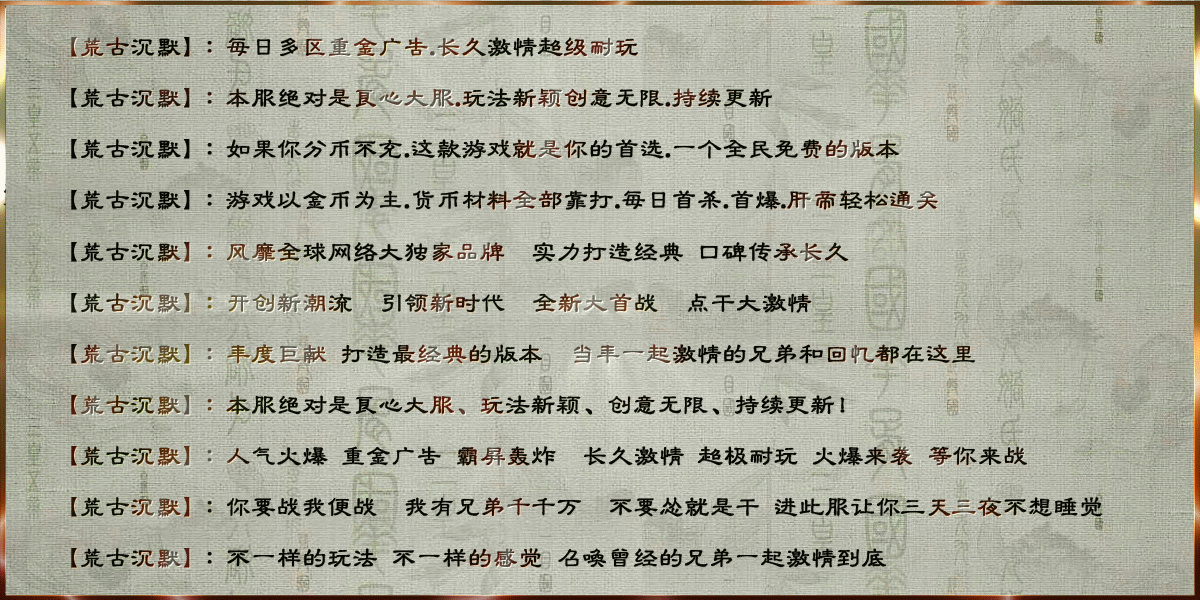 【荒古沉默】：每日多区重金广告.长久激情超级耐玩
【荒古沉默】：本服绝对是良心大服.玩法新颖创意无限.持续更新
【荒古沉默】：如果你分币不充.这款游戏就是你的首选.一个全民免费的版本
【荒古沉默】：游戏以金币为主.货币材料全部靠打.每日首杀.首爆.肝帝轻松通关
【荒古沉默】：风靡全球网络大独家品牌 实力打造经典 口碑传承长久
【荒古沉默】：开创新潮流 引领新时代 全新大首战 点干大激情
【荒古沉默】：年度巨献 打造最经典的版本 当年一起激情的兄弟和回忆都在这里
【荒古沉默】：本服绝对是良心大服、玩法新颖、创意无限、持续更新！
【荒古沉默】：人气火爆 重金广告 霸屏轰炸 长久激情 超极耐玩 火爆来袭 等你来战
【荒古沉默】：你要战我便战 我有兄弟千千万 不要怂就是干 进此服让你三天三夜不想睡觉
【荒古沉默】：不一样的玩法 不一样的感觉 召唤曾经的兄弟一起激情到底